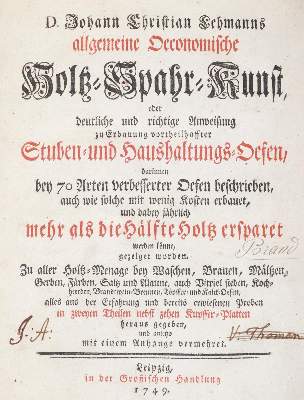 D. Johann Christian Lehmanns
allgemeine Oeconomische
Holtz-Spahr-Kunst,
oder
deutliche und richtige Anweisung
zu Erbauung vortheilhaffter
Stuben- und Haushaltungs-Oefen,
darinnen
bey 70 Arten verbesserter Oefen beschrieben,
auch wie solche mit wenig Kosten erbauet,
und dabey jährlich
mehr als die Hälfte Holtz ersparet
werden könne,
gezeiget worden.
Brand
Zu aller Holtz-Menage bey Waschen, Brauen, Mältzen,
Gerben, Färben, Saltz und Alaune, auch Vitriol sieden, Koch-
heerder, Brantewein-Brenner, Töpffer- und Kalck-Oefen,
alles aus der Erfahrung und bereits erwiesenen Proben
in zweyen Theilen nebst zehen Kupffer-Platten
heraus gegeben,
J. A.
und anitzo
mit einem Anhange vermehret.
Leipzig,
in der Großischen Handlung
1749.